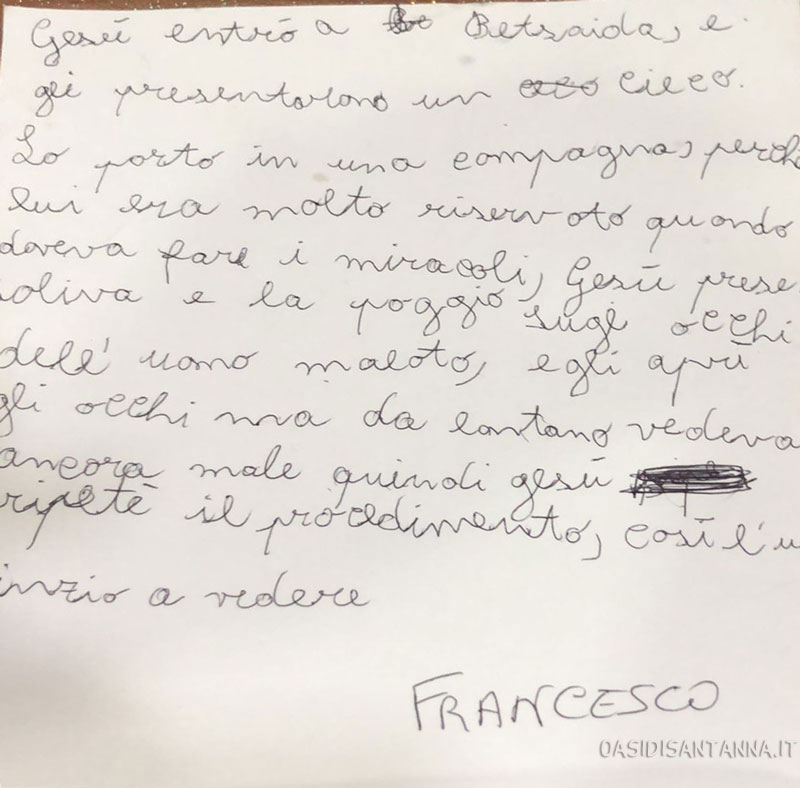 Gesù entrò a Betsaida, e
gli presentarono un cieco.
Lo porto in una campagna, perch
lui era molto riservato quando
doveva fare i miracoli, Gesù prese
saliva e la poggiò sugli occhi
dell' uomo malato, egli aprì
gli occhi ma da lontano vedeva
ancora male quindi gesù
ripetè il procedimento, così l'u
inzio a vedere
FRANCESCO
OASIDISANTANNA.IT